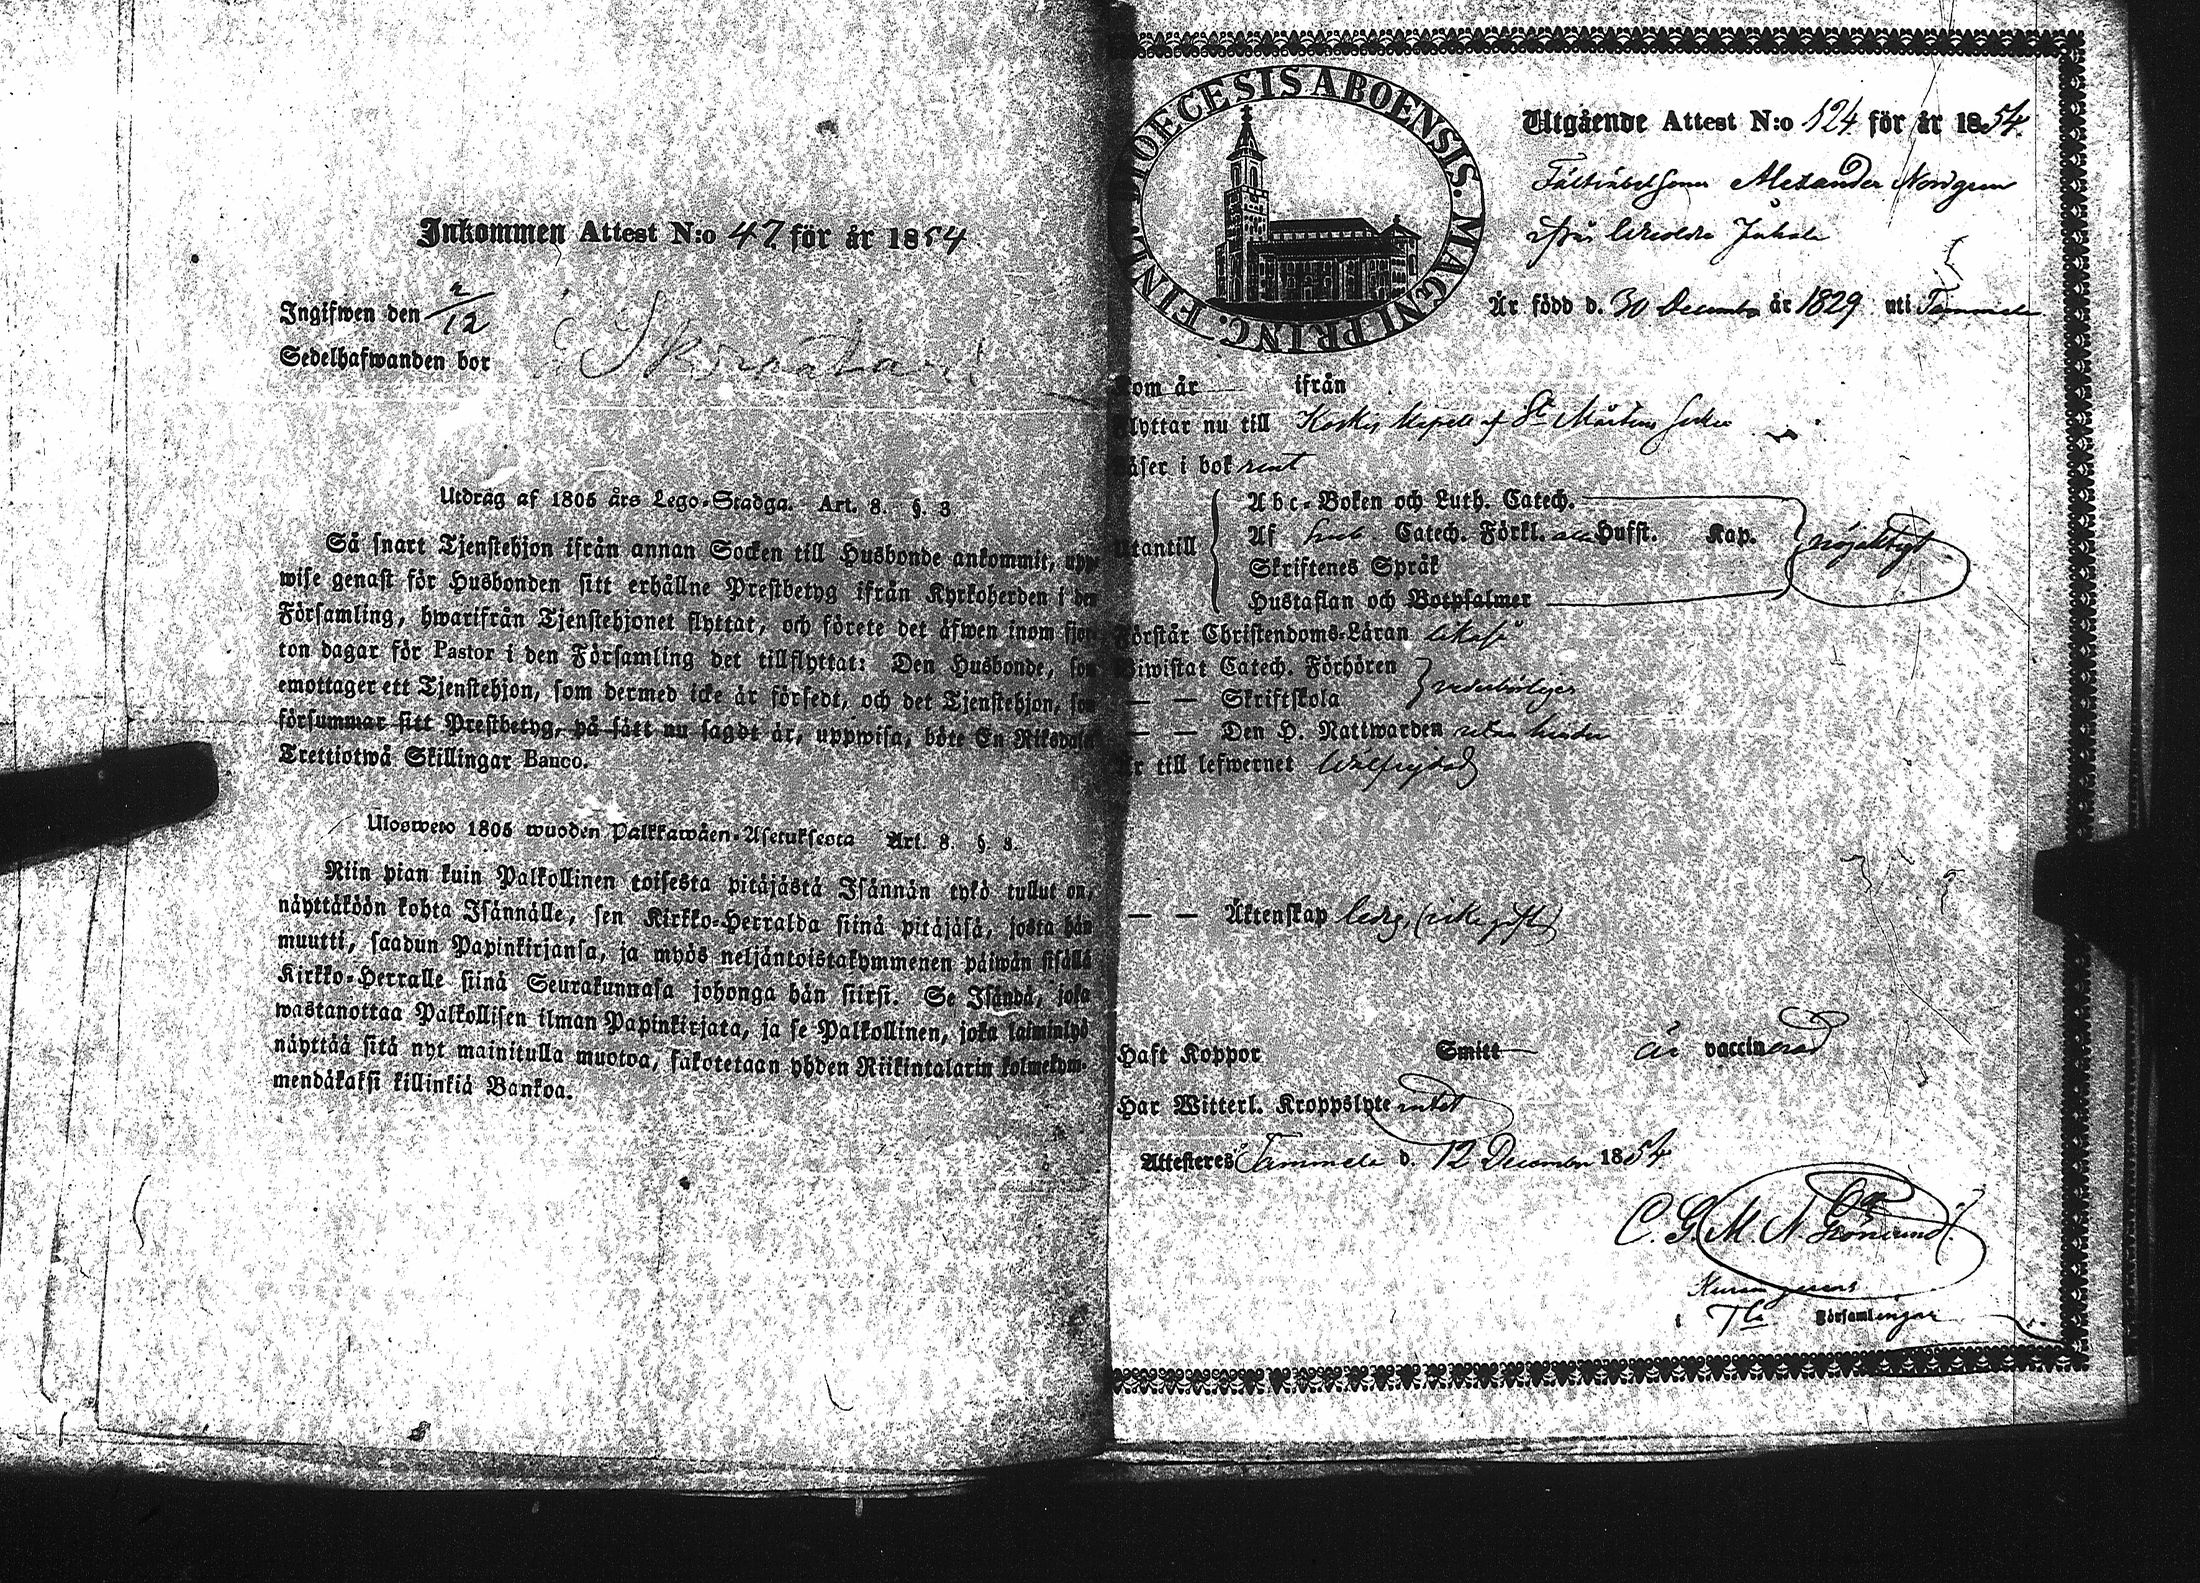 Inkommen Attest N:o 47 för år 1854
Ingifwen den 2/12
Sedelhafwanden bor
Utdrag af 1805 års Lego-Stadga. Art. 8. §. 3.
Så snart Tjenstehjon ifrån annan Socken till Husbonde ankommit, upp-
wise genast för Husbonden sitt erhållne Prestbetyg ifrån Kyrkoherden i den
Församling, hwarifrån Tjenstehjonet flyttat, och förete det äfwen inom fjor-
ton dagar för Pastor i den Församling det tillflyttat: Den Husbonde, som
emottager ett Tjenstehjon, som dermed icke är försedt, och det Tjenstehjon, som
försummar sitt Prestbetyg, på sätt nu sagdt är, uppwisa, böte En Riksdaler
Trettiotwå Skillingar Banco.
Ulosweto 1805 wuoden Palkkawäen-Asetuksesta Art. 8. §. 3.
Niin pian kuin Palkollinen toisesta pitäjästä Isännän tykö tullut on,
näyttäköön kohta Isännälle, sen Kirkko-Herralda siinä pitäjäsä, josta hän
muutti, saadun Papinkirjansa, ja myös neljäntoistakymmenen päiwän sisällä
Kirkko-Herralle siinä Seurakunnasa johonga hän siirsi. Se Isändä, joka
wastanottaa Palkollisen ilman Papinkirjata, ja se Palkollinen, joka laiminlyö
näyttää sitä nyt mainitulla muotoa, sakotetaan yhden Riikintalarin kolmekym-
mendäkaksi killinkiä Bankoa.
DIOECESIS ABOENSIS. MAGNI PRINC. FINL.
Utgående Attest N:o 124 för år 1854.
Alexander Nordgren
ifrån
Är född d. 30 December år 1829 uti Tammela
kom år ifrån
flyttar nu till Koskis Kapell af St Mårtens Socken
Läser i bok rent
Utantill
Abc-Boken och Luth. Catech.
Af Catech. Förkl. Hufst. Kap. nöjaktigt
Skriftenes Språk
Hustaflan och Botpsalmer
Förstår Christendoms-Läran
Biwistat Catech. Förhören
— — Skriftskola vederbörligen
— — Den H. Nattwarden
Är till lefwernet Wälfrejdad
— — Äktenskap ledig, (icke gift)
Haft Koppor Smitt är vaccinerad
Har Witterl. Kroppslyte intet
Attesteres Tammela d. 12 December 1854
C. G. M. N.
i Tla Församlingar